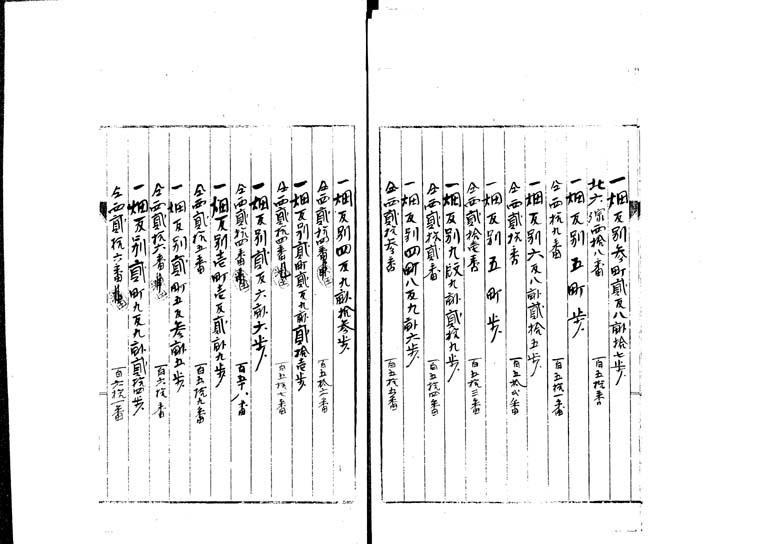 一畑反別参町貳反八畝拾七歩
北六線西拾八番 百五拾番
一畑反別五町歩
仝西拾九番 百五拾一番
一畑反別六反八畝貳拾五歩
仝西貳拾番 百五拾弐番
一畑反別五町歩
仝西貳拾壱番 百五拾三番
一畑反別九段九畝貳拾九歩
仝西貳拾貳番 百五拾四番
一畑反別四町八反九畝六歩
仝西貳拾参番 百五拾五番
一畑反別四反九畝拾参歩
仝西貳拾四番 百五拾六番
一畑反別貳町貳反九畝貳拾壱歩
仝西貳拾四番 百五拾七番
一畑反別貳反六畝六歩
仝西貳拾四番 百五十八番
一畑反別壱町壱反貳畝九歩
仝西貳拾五番 百五拾九番
一畑反別貳町五反参畝五歩
仝西貳拾六番 百六拾番
一畑反別貳町九反九畝貳拾四歩
仝西貳拾六番 百六拾一番